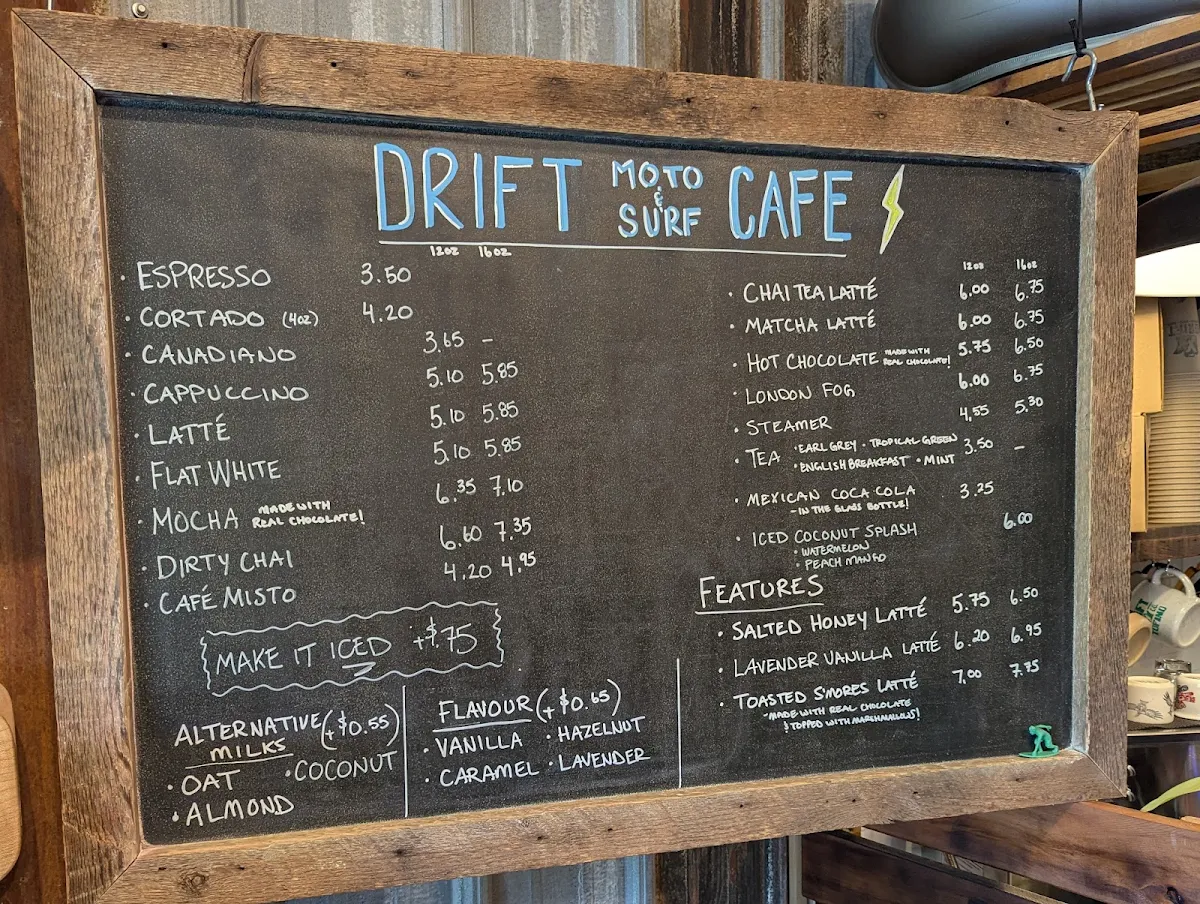 DRIFT MOTO & SURF CAFE
12oz 16oz
· ESPRESSO 3.50
· CORTADO (4oz) 4.20
· CANADIANO 3.65 –
· CAPPUCCINO 5.10 5.85
· LATTÉ 5.10 5.85
· FLAT WHITE 5.10 5.85
· MOCHA MADE WITH REAL CHOCOLATE! 6.35 7.10
· DIRTY CHAI 6.60 7.35
· CAFÉ MISTO 4.20 4.95
MAKE IT ICED +$.75
ALTERNATIVE MILKS (+$0.55)
· OAT · COCONUT
· ALMOND
FLAVOUR (+$0.65)
· VANILLA · HAZELNUT
· CARAMEL · LAVENDER
12oz 16oz
· CHAI TEA LATTÉ 6.00 6.75
· MATCHA LATTÉ 6.00 6.75
· HOT CHOCOLATE MADE WITH REAL CHOCOLATE! 5.75 6.50
· LONDON FOG 6.00 6.75
· STEAMER 4.55 5.30
· TEA · EARL GREY · TROPICAL GREEN 3.50 –
· ENGLISH BREAKFAST · MINT
· MEXICAN COCA COLA 3.25
– IN THE GLASS BOTTLE!
· ICED COCONUT SPLASH 6.00
· WATERMELON
· PEACH MANGO
FEATURES
· SALTED HONEY LATTÉ 5.75 6.50
· LAVENDER VANILLA LATTÉ 6.20 6.95
· TOASTED S'MORES LATTÉ 7.00 7.75
– MADE WITH REAL CHOCOLATE
& TOPPED WITH MARSHMALLOWS!